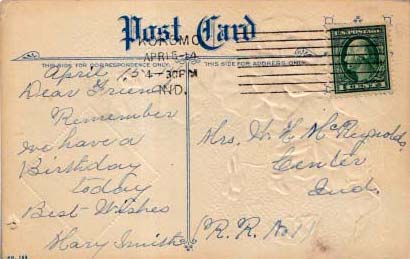 Post Card
KOKOMO
APR 15
4-30PM
IND.
U.S. POSTAGE
1 CENT 1
THIS SIDE FOR CORRESPONDENCE ONLY.
THIS SIDE FOR ADDRESS ONLY.
April 15
Dear Friend
Remember
we have a
Birthday
today
Best Wishes
Mary Smith
Mrs. H. H. McReynolds,
Center
Ind.
R. R. No 1